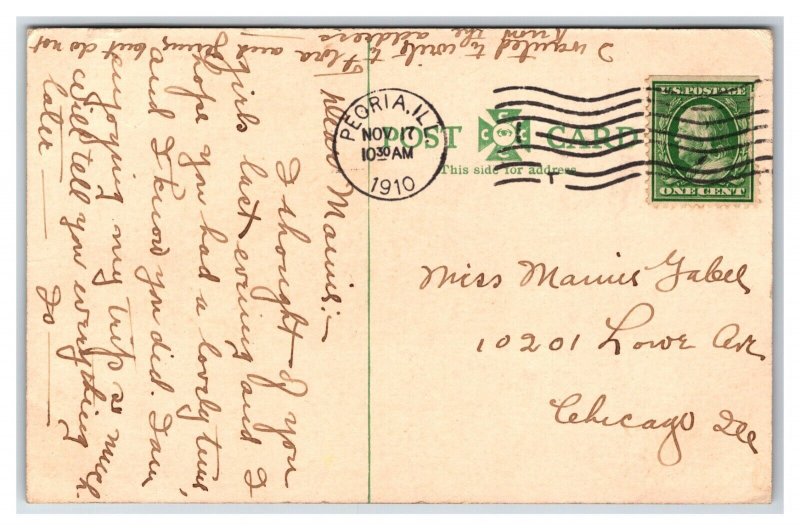 Dear Mamie:—
I thought of you
girls last evening and I
hope you had a lovely time
and I know you did. I am
enjoying my trip so much.
Will tell you everything
later —
Jo —
I wanted to write to Flora and but do not
know the address
PEORIA, ILL.
NOV 17
10 30 AM
1910
POST CARD
This side for address
U.S. POSTAGE
ONE CENT
Miss Mamie Gabel
10201 Lowe Ave
Chicago Ill